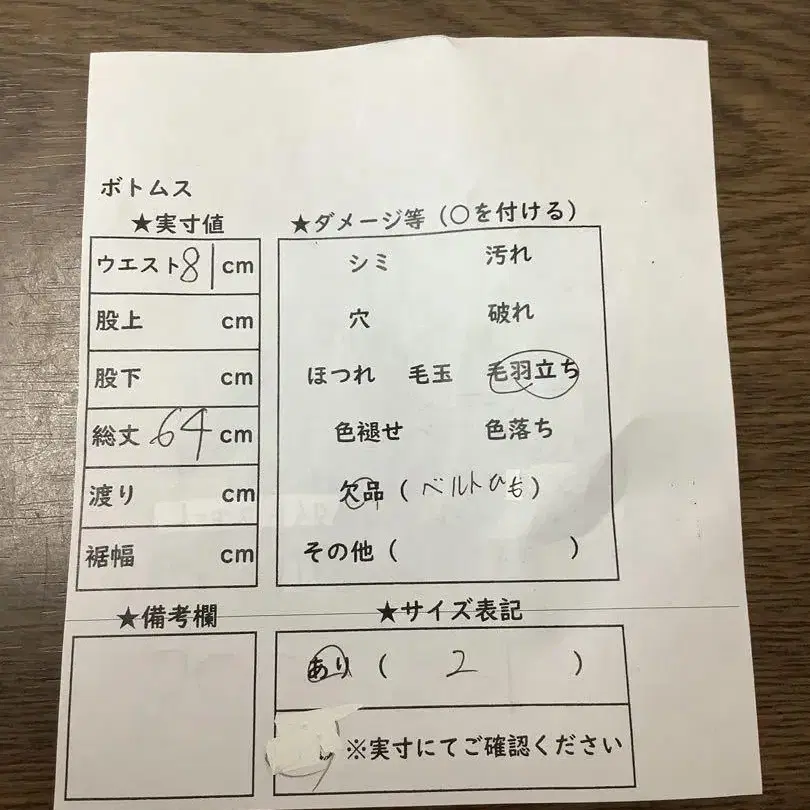 ボトムス
★実寸値
ウエスト81cm
股上 cm
股下 cm
総丈 64 cm
渡り cm
裾幅 cm
★ダメージ等（○を付ける）
シミ 汚れ
穴 破れ
ほつれ 毛玉 毛羽立ち
色褪せ 色落ち
欠品（ベルトひも）
その他（ ）
★備考欄
★サイズ表記
あり（ 2 ）
※実寸にてご確認ください